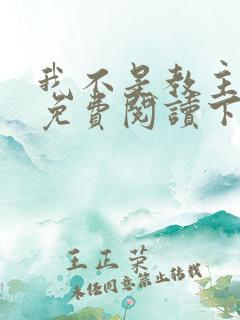 我不是教主
免費閱讀下
王正荣
未经同意禁止转载